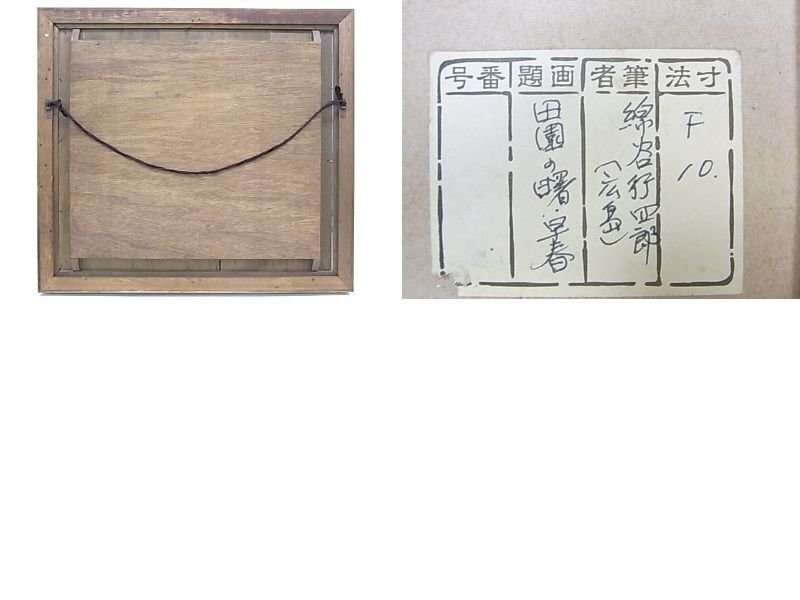 寸法
F
10.
筆者
綿谷行四郎
（広島）
画題
田園の曙・早春
番号